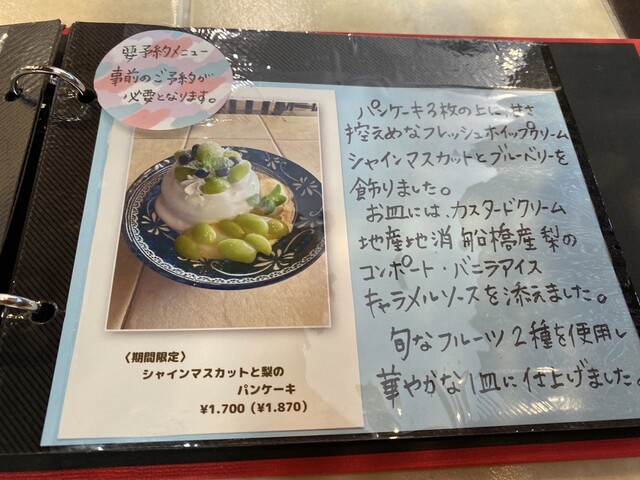 要予約メニュー
事前のご予約が
必要となります。
パンケーキ3枚の上に、甘さ
控えめなフレッシュホイップクリーム
シャインマスカットとブルーベリーを
飾りました。
お皿には、カスタードクリーム
地産地消 船橋産梨の
コンポート・バニラアイス
キャラメルソースを添えました。
旬なフルーツ2種を使用し
華やかな1皿に仕上げました。
〈期間限定〉
シャインマスカットと梨の
パンケーキ
¥1.700(¥1.870)